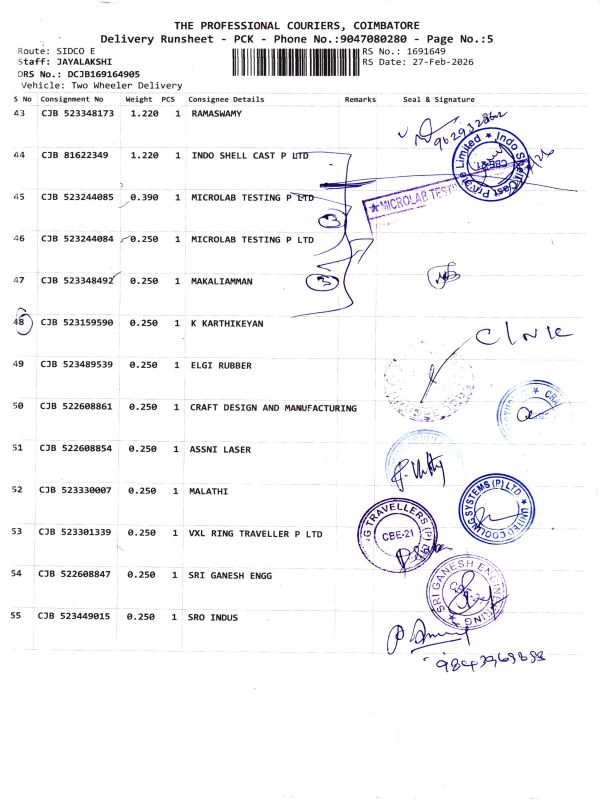 THE PROFESSIONAL COURIERS, COIMBATORE
Delivery Runsheet - PCK - Phone No.:9047080280 - Page No.:5
Route: SIDCO E
Staff: JAYALAKSHI
DRS No.: DCJB169164905
Vehicle: Two Wheeler Delivery
RS No.: 1691649
RS Date: 27-Feb-2026
S No Consignment No Weight PCS Consignee Details Remarks Seal & Signature
43 CJB 523348173 1.220 1 RAMASWAMY
44 CJB 81622349 1.220 1 INDO SHELL CAST P LTD
Indo Shell Cast Private Limited
CBE-21
45 CJB 523244085 0.390 1 MICROLAB TESTING P LTD
MICROLAB TESTI
46 CJB 523244084 0.250 1 MICROLAB TESTING P LTD
47 CJB 523348492 0.250 1 MAKALIAMMAN
3
48 CJB 523159590 0.250 1 K KARTHIKEYAN
49 CJB 523489539 0.250 1 ELGI RUBBER
50 CJB 522608861 0.250 1 CRAFT DESIGN AND MANUFACTURING
51 CJB 522608854 0.250 1 ASSNI LASER
52 CJB 523330007 0.250 1 MALATHI
UNITED COOLING SYSTEMS (P) LTD
53 CJB 523301339 0.250 1 VXL RING TRAVELLER P LTD
G TRAVELLERS (P)
CBE-21
54 CJB 522608847 0.250 1 SRI GANESH ENGG
SRI GANESH ENGINEERING
55 CJB 523449015 0.250 1 SRO INDUS